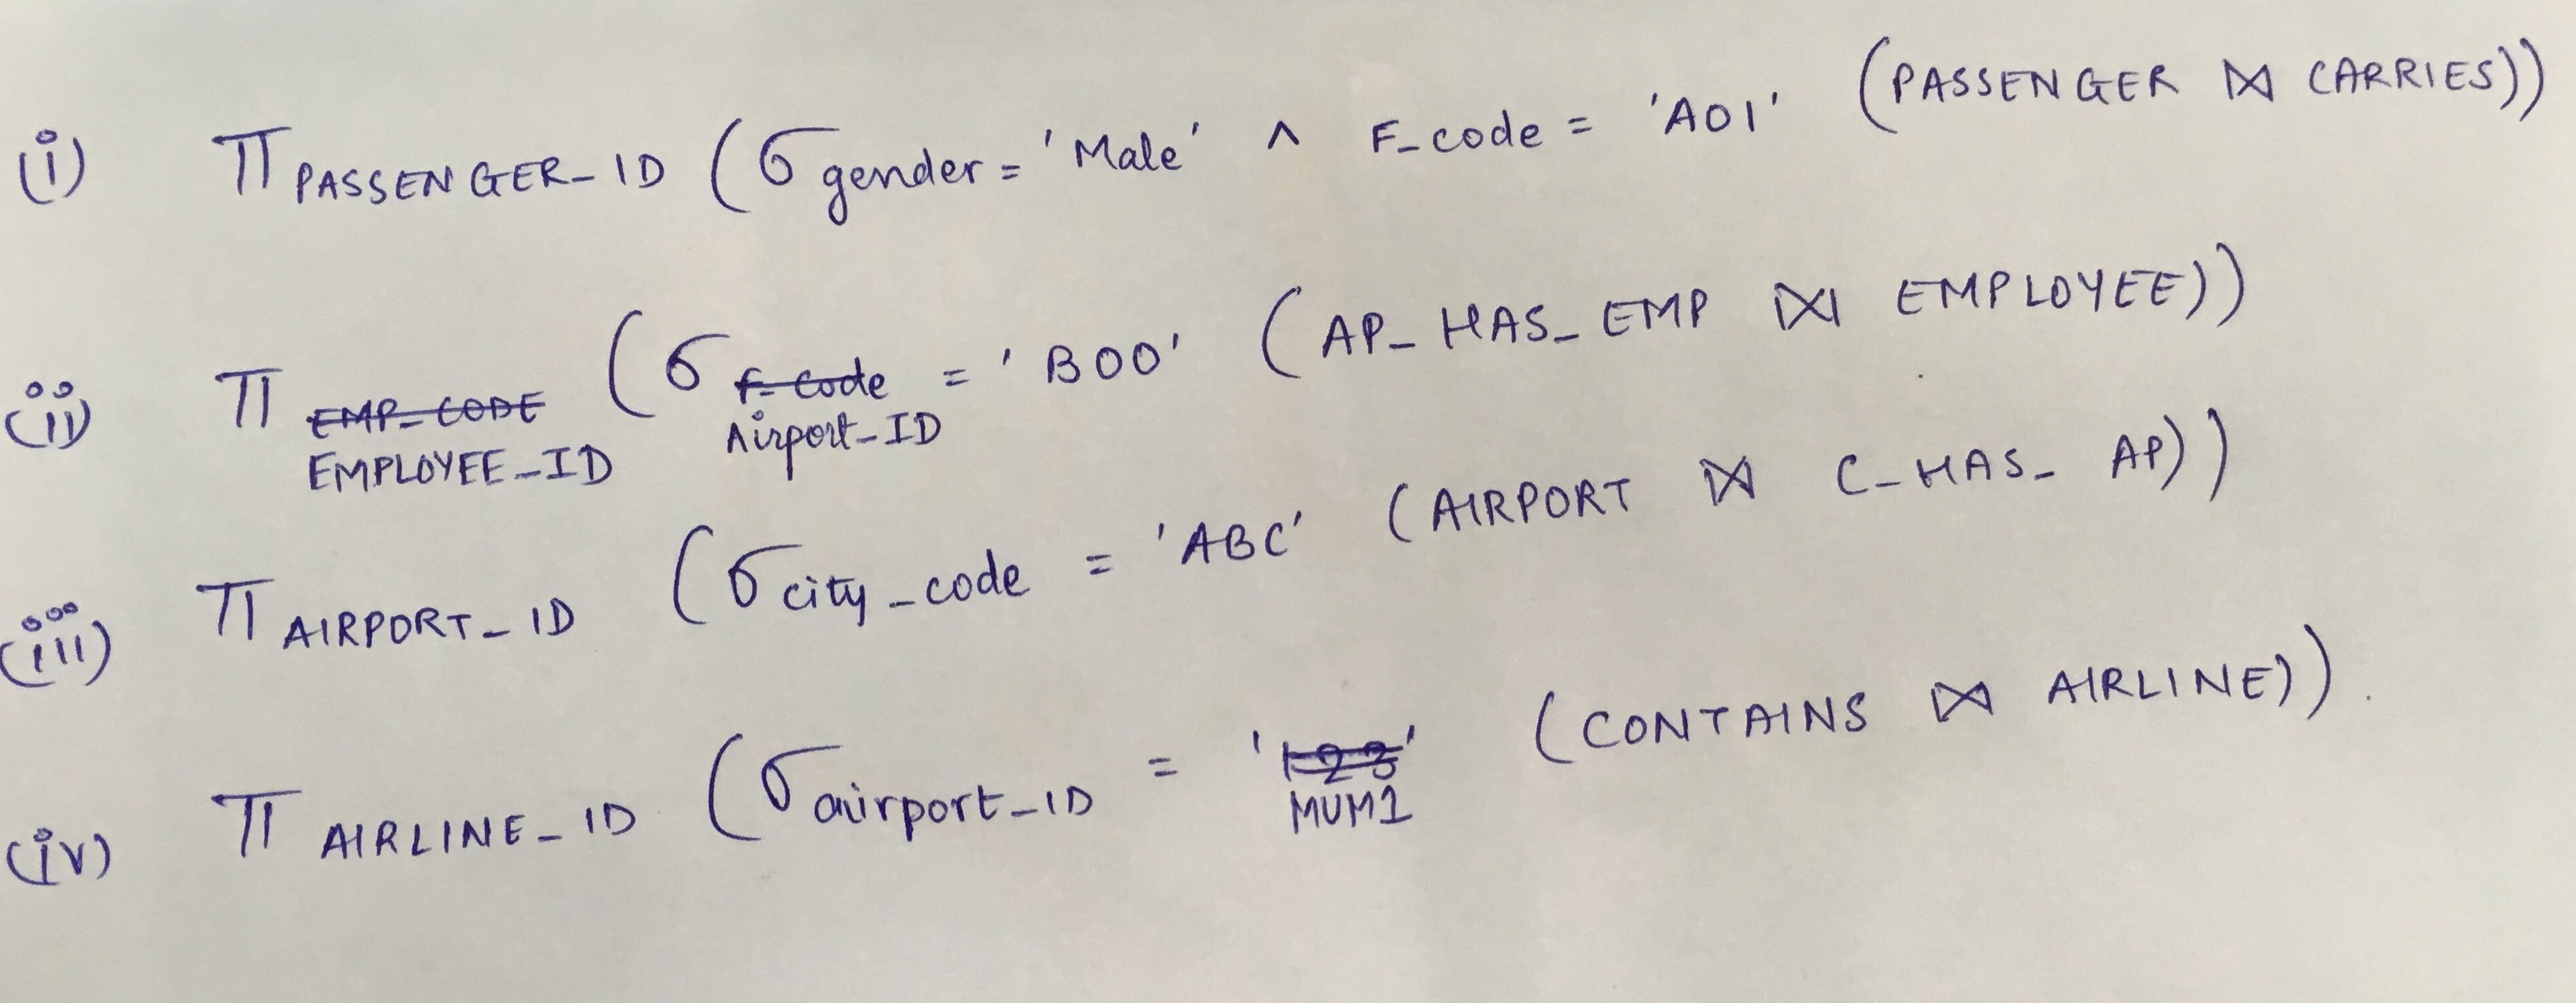 (i) π PASSENGER_ID (σ gender = 'Male' ∧ F_code = 'A01' (PASSENGER ⋈ CARRIES))
(ii) π EMP_CODE EMPLOYEE_ID (σ F_code Airport_ID = 'B00' (AP_HAS_EMP ⋈ EMPLOYEE))
(iii) π AIRPORT_ID (σ city_code = 'ABC' (AIRPORT ⋈ C_HAS_AP))
(iv) π AIRLINE_ID (σ airport_ID = '123' MUM1 (CONTAINS ⋈ AIRLINE)).